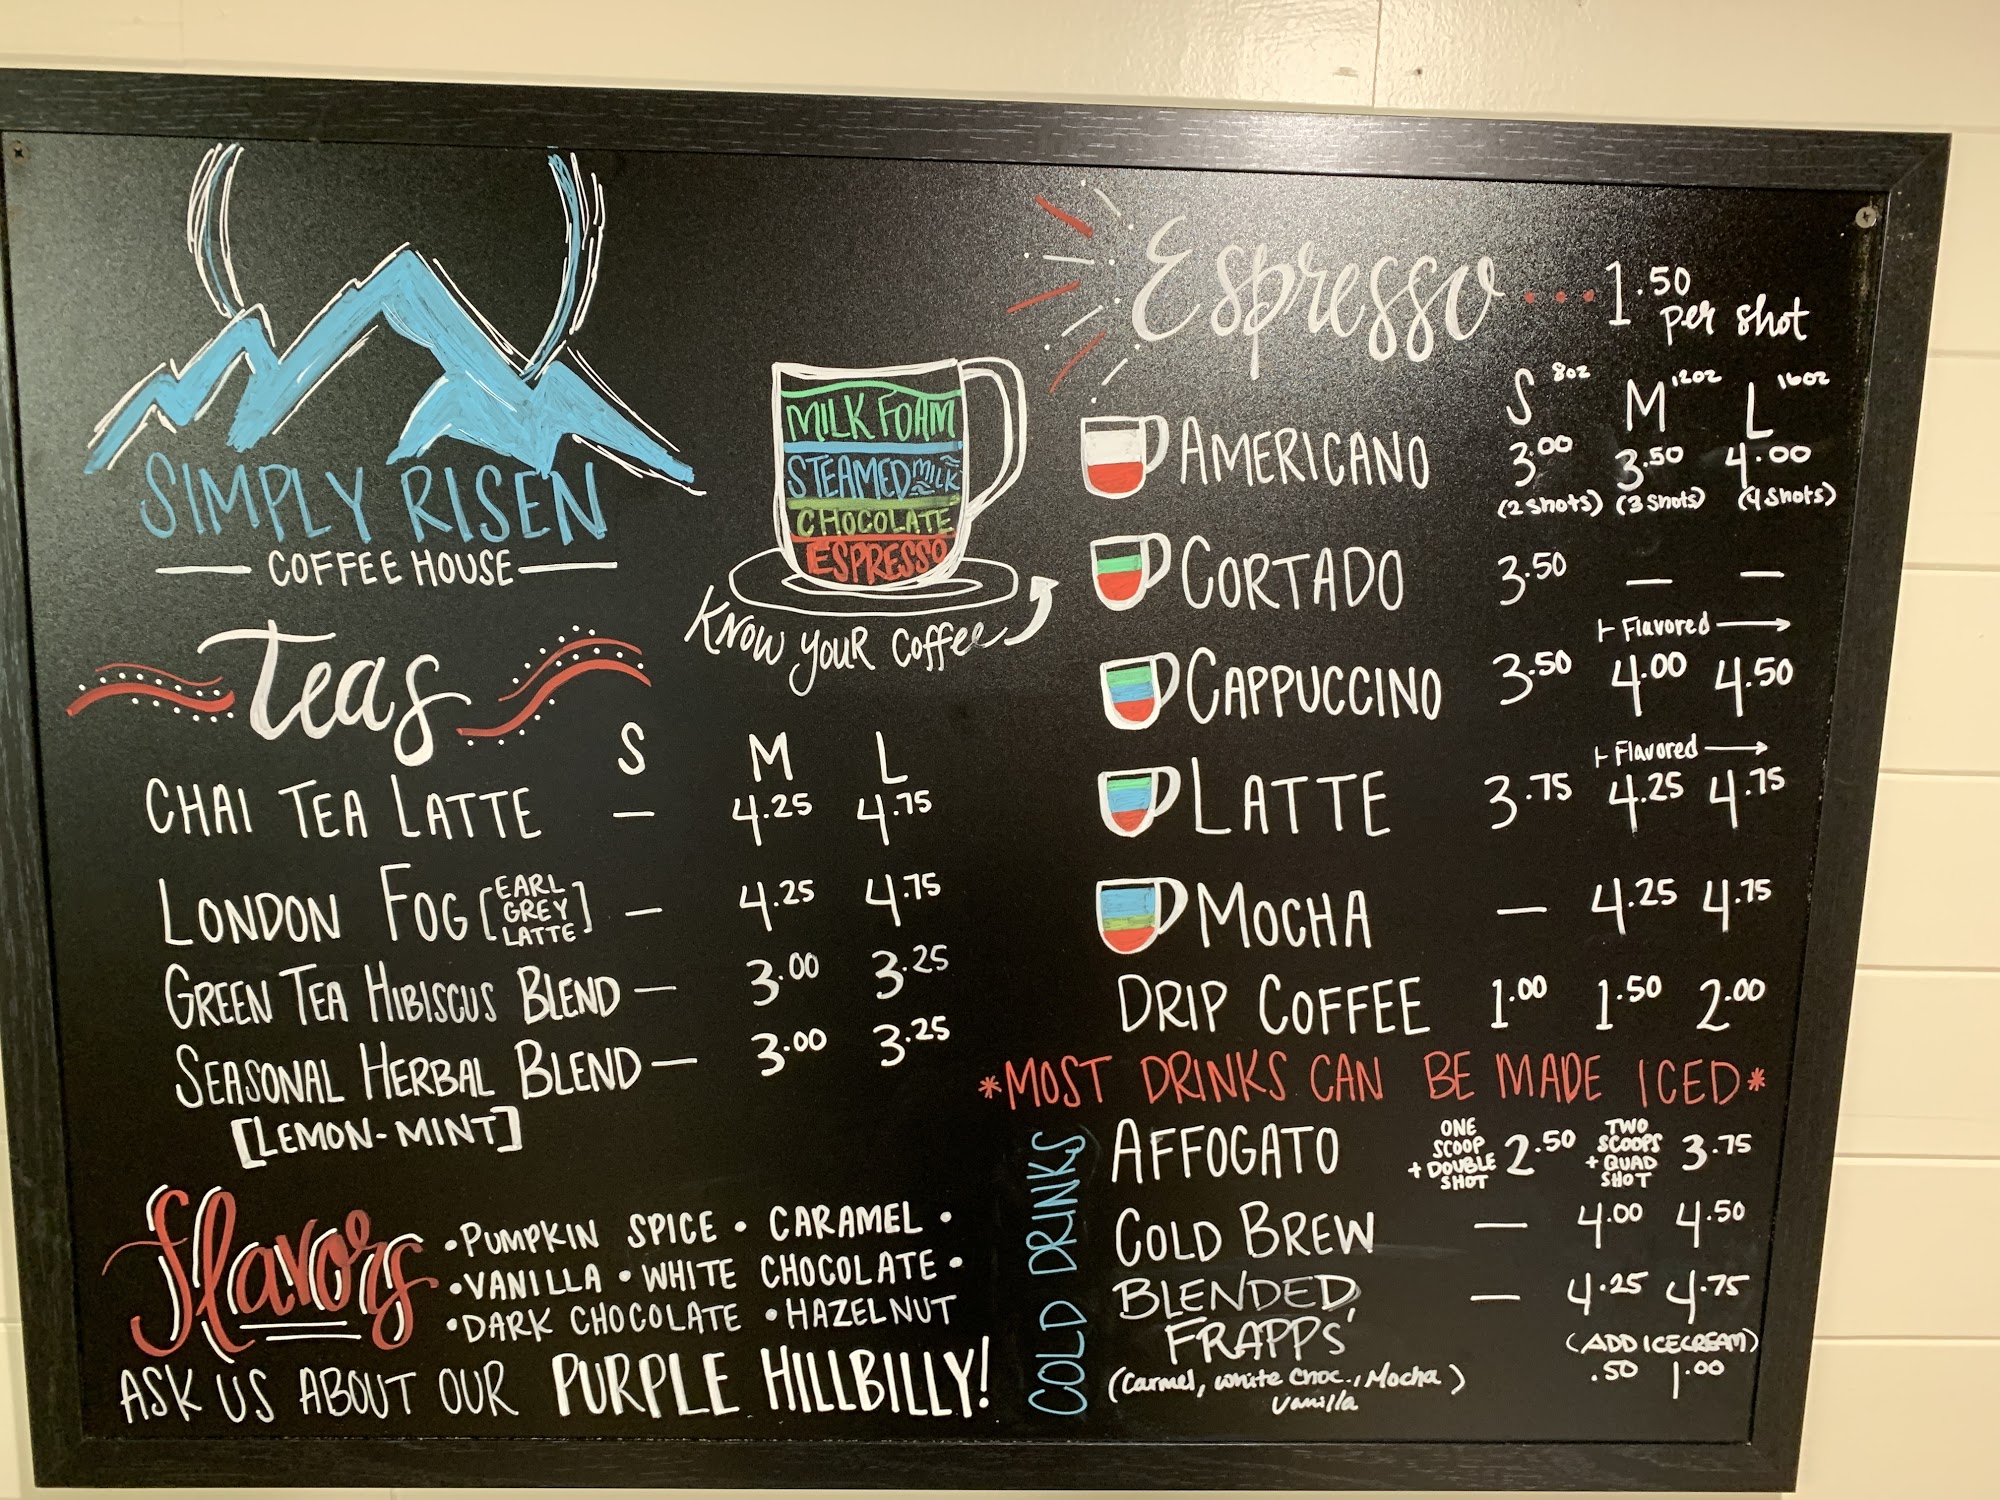 SIMPLY RISEN
COFFEE HOUSE
MILK FOAM
STEAMED MILK
CHOCOLATE
ESPRESSO
KNOW YOUR Coffee
Teas
S M L
CHAI TEA LATTE — 4.25 4.75
LONDON FOG [EARL GREY LATTE] — 4.25 4.75
GREEN TEA HIBISCUS BLEND — 3.00 3.25
SEASONAL HERBAL BLEND — 3.00 3.25
[LEMON-MINT]
Flavors
•PUMPKIN SPICE • CARAMEL •
•VANILLA • WHITE CHOCOLATE •
•DARK CHOCOLATE • HAZELNUT
ASK US ABOUT OUR PURPLE HILLBILLY!
Espresso ... 1.50 per shot
S 8oz M 12oz L 16oz
AMERICANO 3.00 3.50 4.00
(2 shots) (3 shots) (4 shots)
CORTADO 3.50 — —
Flavored
CAPPUCCINO 3.50 4.00 4.50
Flavored
LATTE 3.75 4.25 4.75
MOCHA — 4.25 4.75
DRIP COFFEE 1.00 1.50 2.00
*MOST DRINKS CAN BE MADE ICED*
COLD DRINKS
AFFOGATO ONE SCOOP + DOUBLE SHOT 2.50 TWO SCOOPS + QUAD SHOT 3.75
COLD BREW — 4.00 4.50
BLENDED — 4.25 4.75
FRAPPS' (ADD ICECREAM)
.50 1.00
(Carmel, white choc., Mocha)
vanilla